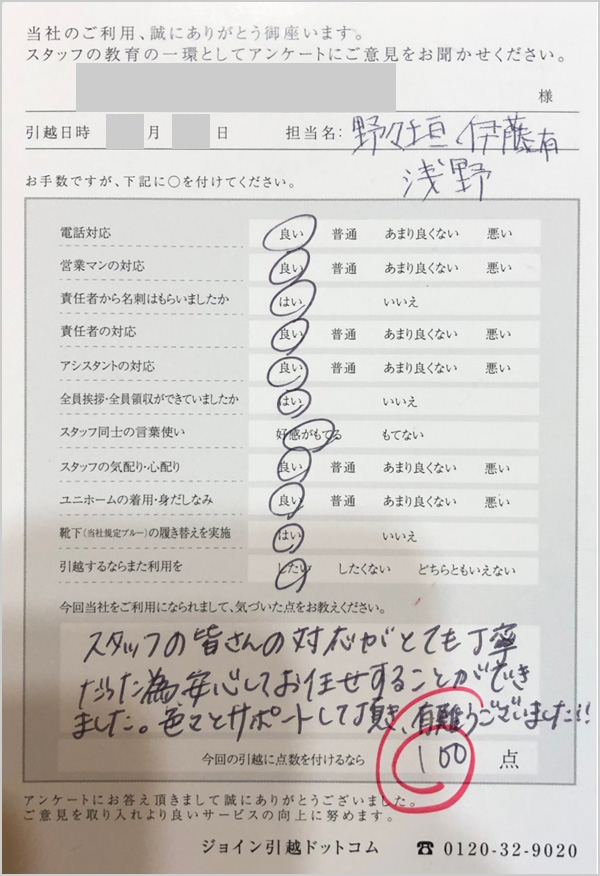 当社のご利用、誠にありがとう御座います。
スタッフの教育の一環としてアンケートにご意見をお聞かせください。
様
引越日時 月 日 担当名: 野々垣、伊藤有
浅野
お手数ですが、下記に〇を付けてください。
電話対応 良い 普通 あまり良くない 悪い
営業マンの対応 良い 普通 あまり良くない 悪い
責任者から名刺はもらいましたか はい いいえ
責任者の対応 良い 普通 あまり良くない 悪い
アシスタントの対応 良い 普通 あまり良くない 悪い
全員挨拶・全員領収ができていましたか はい いいえ
スタッフ同士の言葉使い 好感がもてる もてない
スタッフの気配り・心配り 良い 普通 あまり良くない 悪い
ユニホームの着用・身だしなみ 良い 普通 あまり良くない 悪い
靴下(当社規定ブルー)の履き替えを実施 はい いいえ
引越するならまた利用を したい したくない どちらともいえない
今回当社をご利用になられまして、気づいた点をお教えください。
スタッフの皆さんの対応がとても丁寧
だった為安心してお任せすることができ
ました。色々とサポートして頂き、有難うございました!!
今回の引越に点数を付けるなら 100 点
アンケートにお答え頂きまして誠にありがとうございました。
ご意見を取り入れより良いサービスの向上に努めます。
ジョイン引越ドットコム ☎ 0120-32-9020